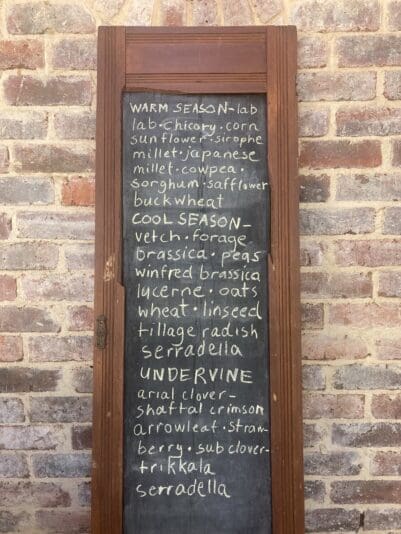 WARM SEASON-lab
lab·chicory·corn
sunflower·sirophe
millet·japanese
millet·cowpea·
sorghum·safflower
buckwheat
COOL SEASON-
vetch·forage
brassica·peas
winfred brassica
lucerne·oats
wheat·linseed
tillage radish
serradella
UNDERVINE
arial clover-
shaftal crimson
arrowleaf·straw-
berry·sub clover-
trikkala
serradella